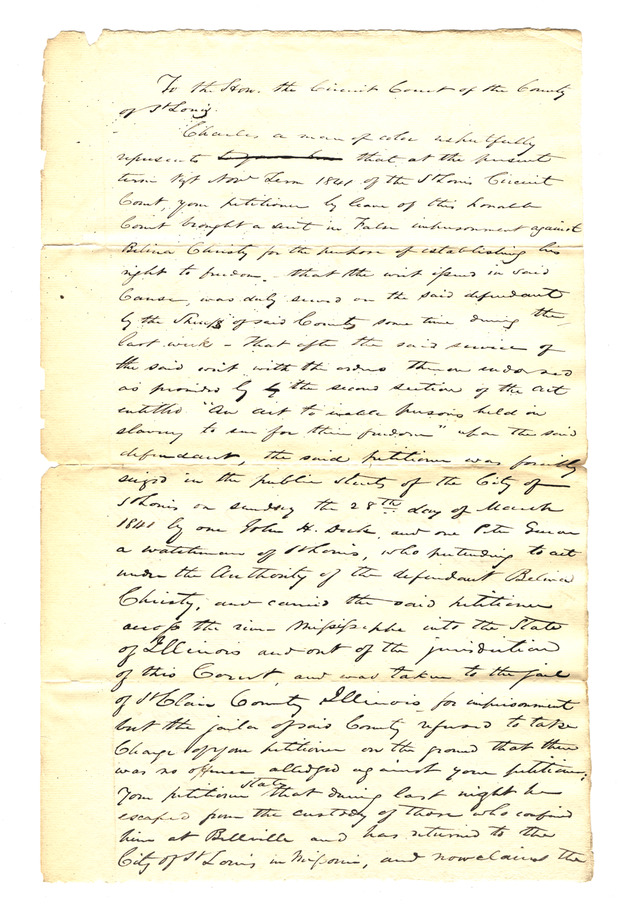 To the Hon. the Circuit Court of the County
of St Louis.
Charles a man of color respectfully
represents that at the present
term Nov. Term 1841 of the St Louis Circuit
Court, your petitioner by leave of this honable
Court brought a suit in False imprisonment against
Belina Christy for the purpose of establishing his
right to freedom. - that the writ issued in said
Cause, was duly served on the said defendant
by the Sheriff of said County some time during the
last week - that after the said service of
the said writ with the orders thereon endorsed
as provided by the second section of the act
entitled "An act to enable persons held in
slavery to sue for their freedom" upon the said
defendant, the said petitioner was forcibly
seized in the public streets of the City of
St Louis on sunday the 28th day of March
1841 by one John H. and one Peter
a watchman of St Louis, who pretending to act
under the Authority of the defendant Belina
Christy, and carried the said petitioner
across the river Missisippi into the State
of Illinois and out of the jurisdiction
of this Court, and was taken to the jail
of St Clair County Illinois for imprisonment
but the jailer of said County refused to take
Charge of your petitioner on the ground that there
was no offence alledged against your petitioner,
Your petitioner States that during last night he
escaped from the custody of those who confined
him at Bellville and has returned to the
City of St Louis in Missouri, and now claims the